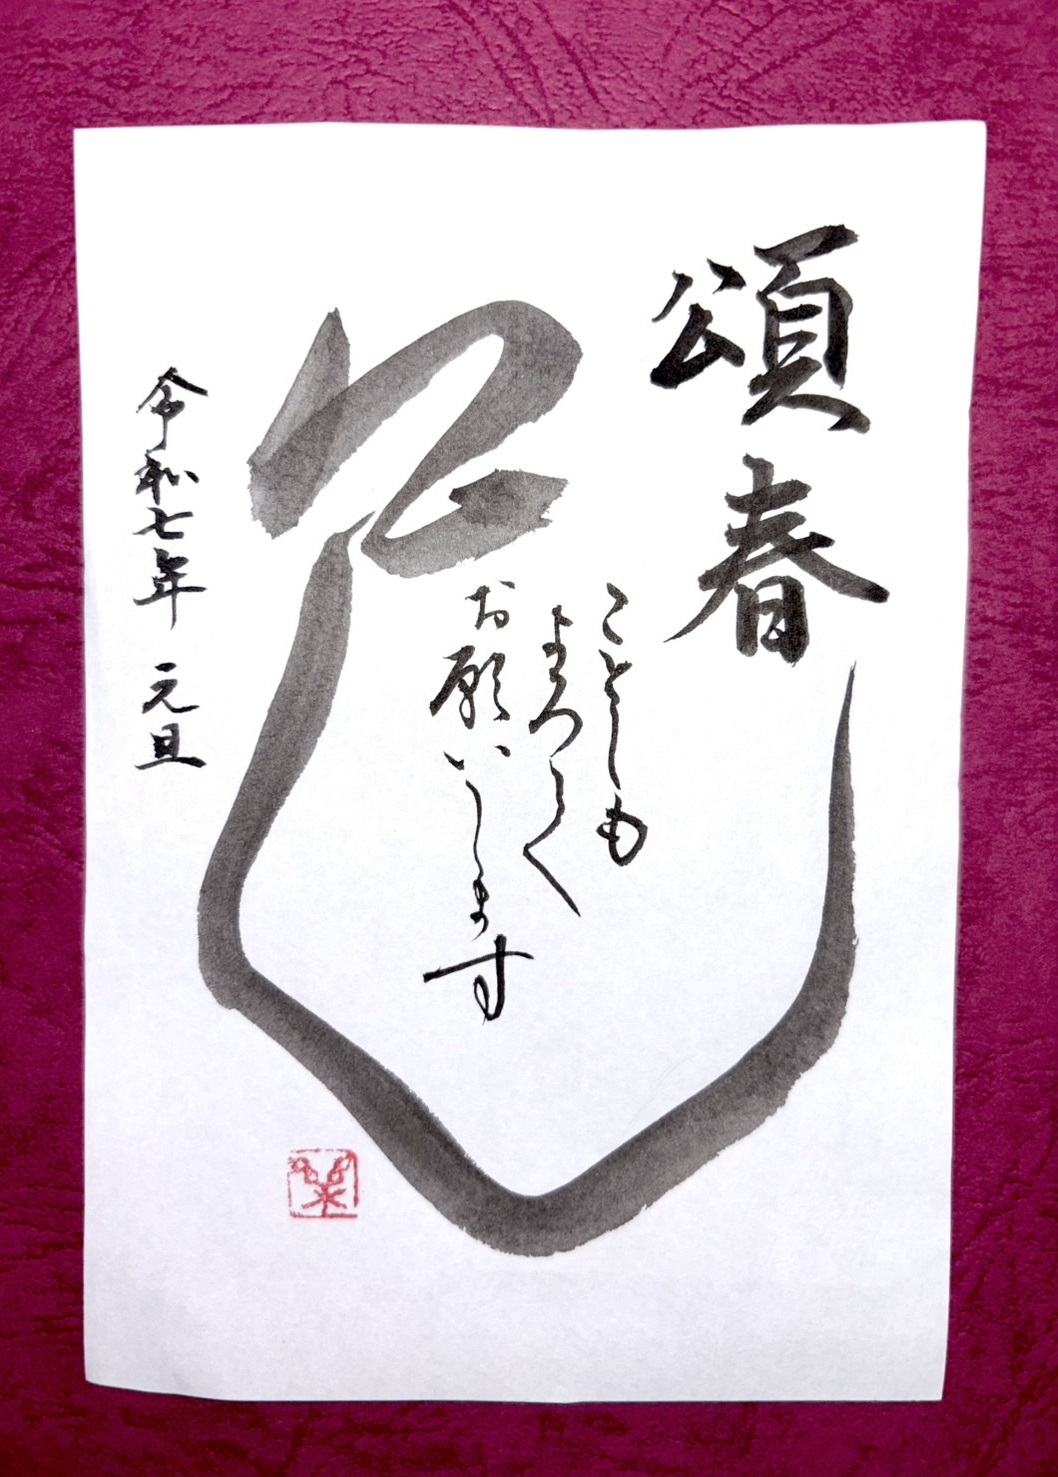 頌春
ことしも
よろしく
お願いします
令和七年 元旦